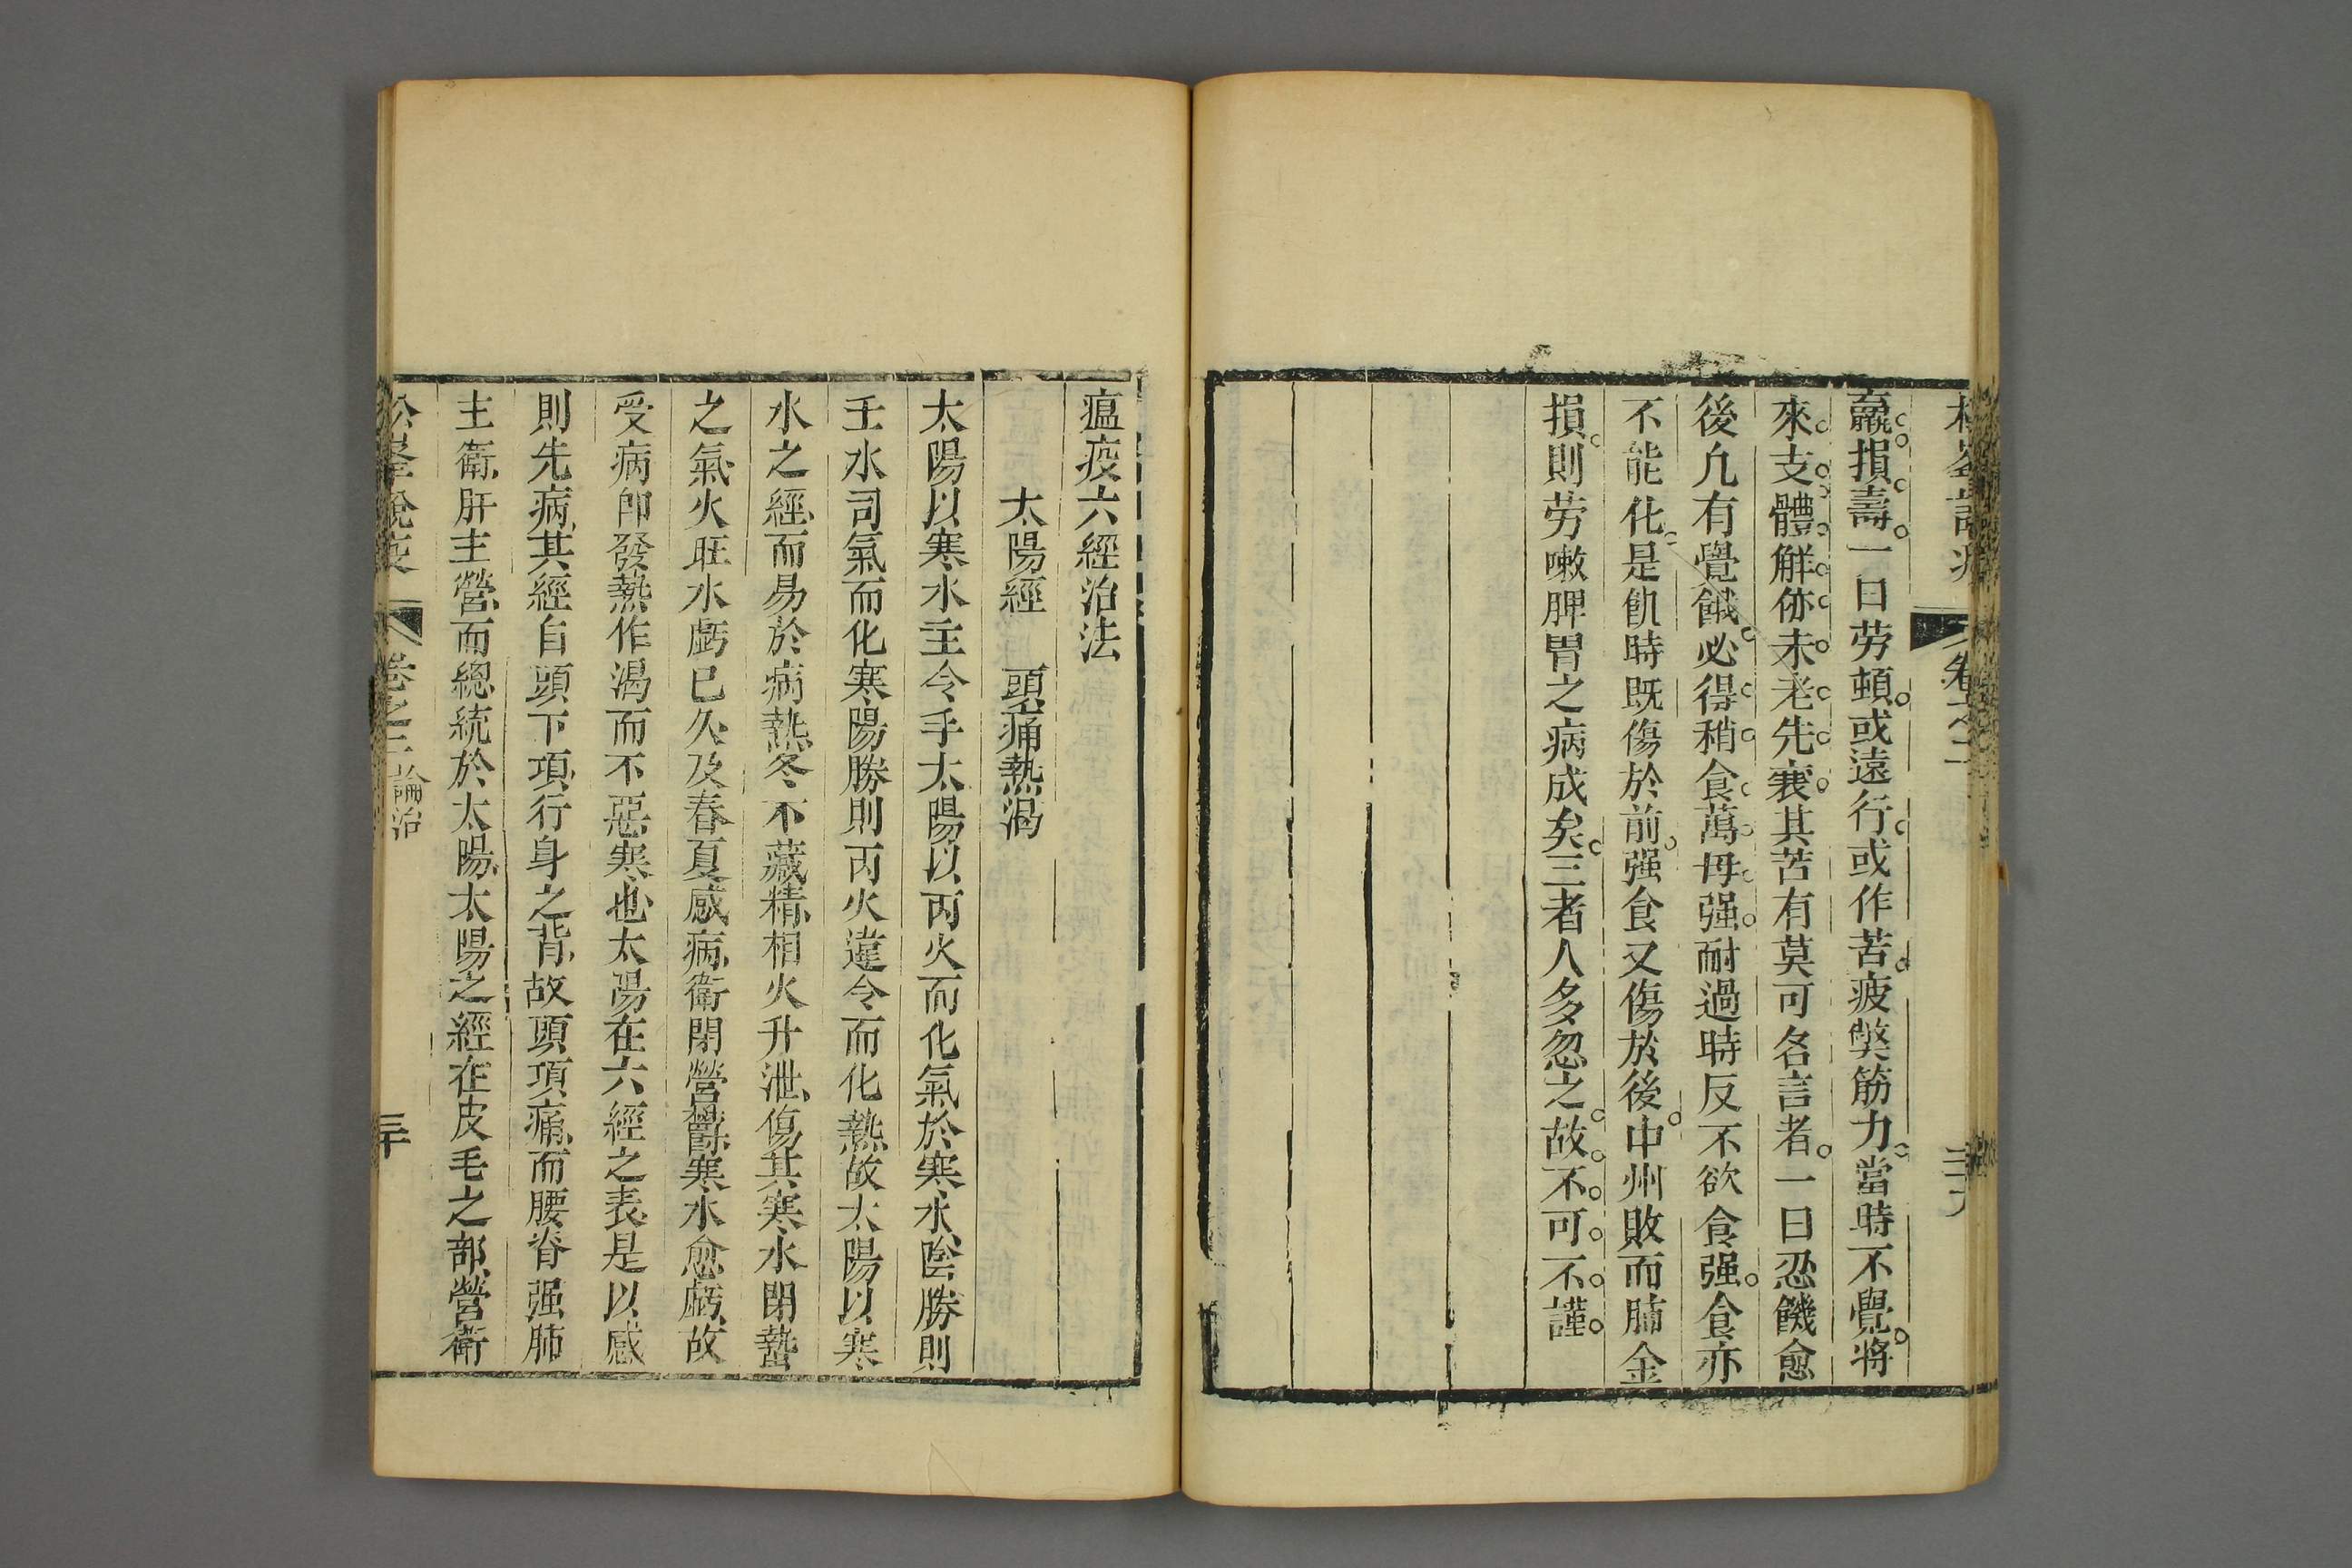 松峯說疫 卷之二 二十九
羸損壽一曰勞頓或遠行或作苦疲獘筋力當時不覺將
來支體觧㑊未老先衰其苦有莫可名言者一曰忍饑愈
後凢有覺餓必得稍食萬毋强耐過時反不欲食强食亦
不能化是飢時既傷於前强食又傷於後中州敗而肺金
損則劳嗽脾胃之病成矣三者人多忽之故不可不謹
瘟疫六經治法
太陽經 頭痛熱渴
太陽以寒水主令手太陽以丙火而化氣於寒水陰勝則
壬水司氣而化寒陽勝則丙火違令而化熱故太陽以寒
水之經而易於病熱冬不藏精相火升泄傷其寒水閉蟄
之氣火旺水虧已久及春夏感病衛閉營欝寒水愈虧故
受病即發熱作渴而不惡寒也太陽在六經之表是以感
則先病其經自頭下項行身之背故頭項痛而腰脊强肺
主衛肝主營而總統於太陽太陽之經在皮毛之部營衛
松峯說疫 卷之二論治 三十